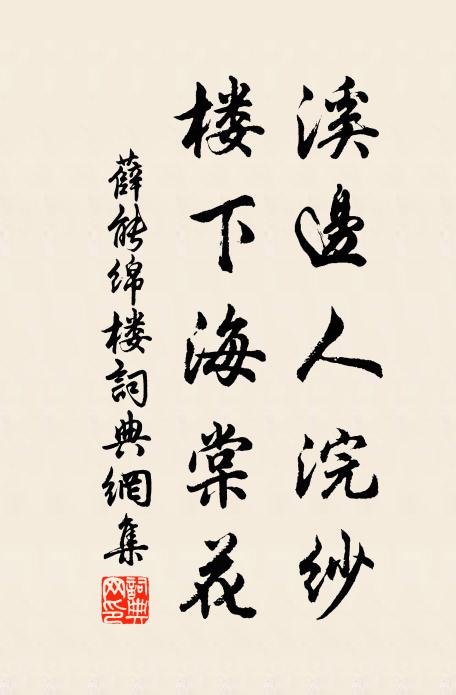 溪邊人浣紗
楼下海棠花
薛能绵楼詞典網集
詞典网印